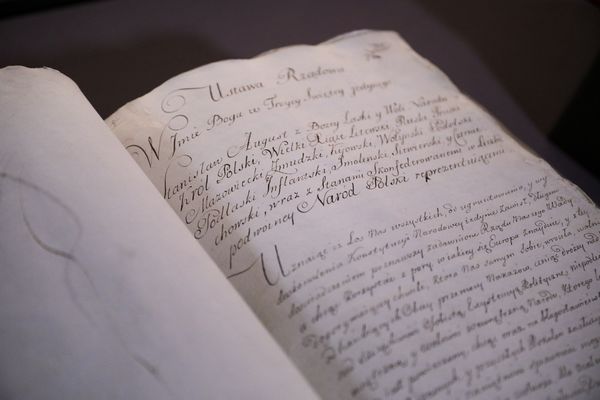 Ustawa Rządowa
W Imie Boga w Troycy Swiętey jedynego
Stanisław August z Bożey Łaski y Woli Narodu
Król Polski, Wielki Xiąże Litewski, Ruski, Pruski,
Mazowiecki, Zmudzki, Kijowski, Wołyński, Podolski
Podlaski, Inflantski, Smolenski, Siewierski, y Czerni-
chowski, wraz z Stanami Skonfederowanemi w liczbie
podwoyney Narod Polski reprezentuiącemi
Uznaiąc, iż Los nas wszystkich, od ugruntowania, y wy
doskonalenia Konstytucyi Narodowey iedynie zawisł, długim
doświadczeniem poznawszy zadawnione Rządu naszego Wady,
a chcąc korzystać z pory, w iakiey się Europa znayduie, y z tey
dogorywaiącey chwili, która nas samym sobie wrociła, wolni
od hanbiących Obcey przemocy Nakazow, ceniąc drożey nad
życie, nad szczęśliwość osobistą, Exystencyą Polityczną, niepodle
głość zewnętrzną, y wolność wewnętrzną Narodu, którego los